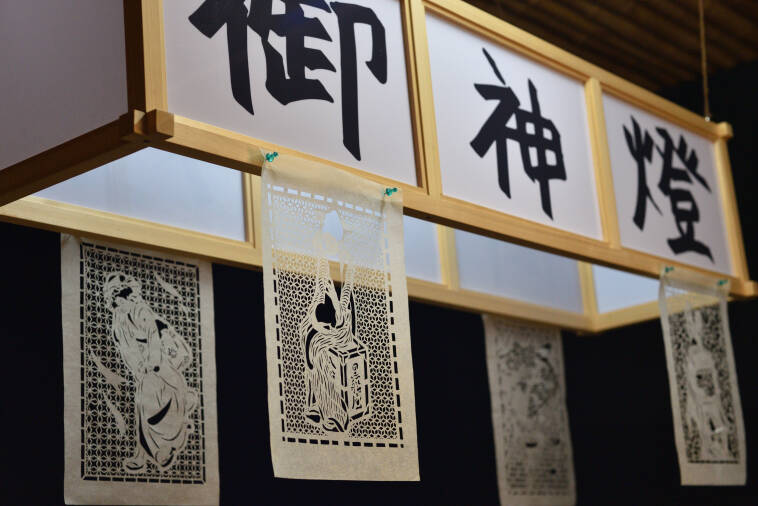 御神燈